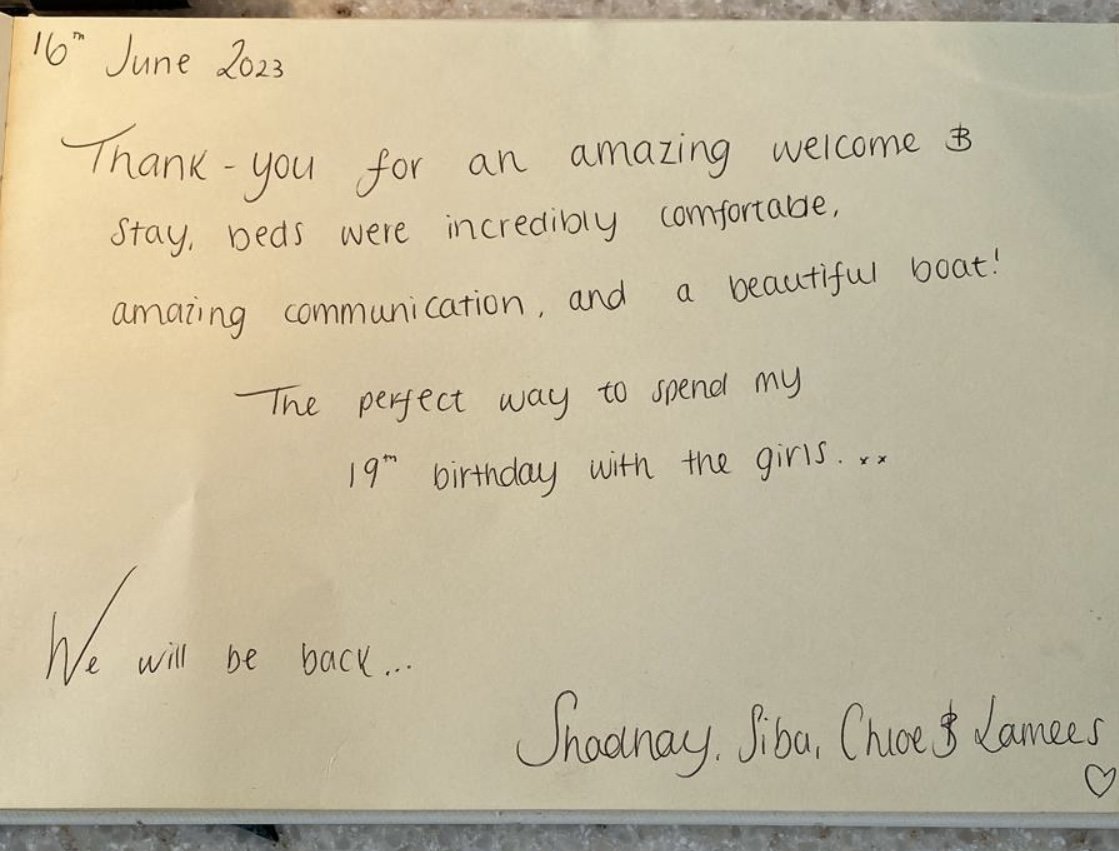 16th June 2023
Thank-you for an amazing welcome &
stay, beds were incredibly comfortable,
amazing communication, and a beautiful boat!
The perfect way to spend my
19th birthday with the girls. . xx
We will be back...
Siba, Chloe & Lamees ♡